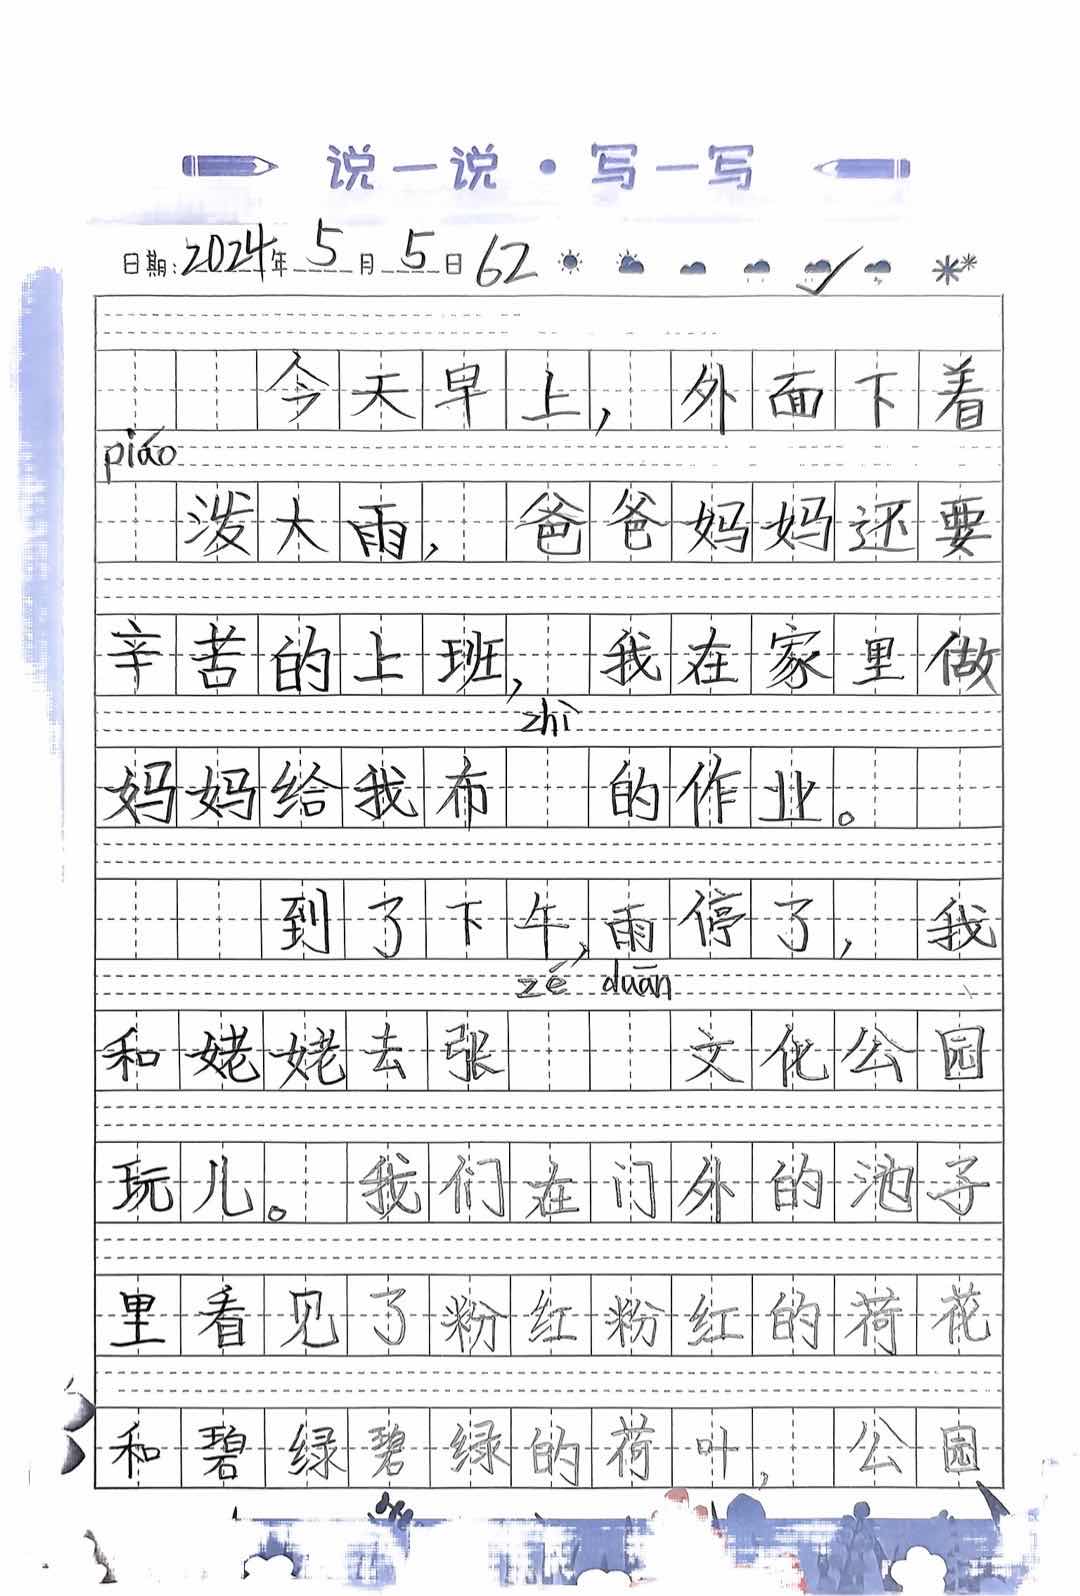 说一说·写一写
日期:2024年5月5日 62
今天早上,外面下着
piáo
泼大雨,爸爸妈妈还要
辛苦的上班,我在家里做
zhì
妈妈给我布 的作业。
到了下午,雨停了,我
zé duān
和姥姥去张 文化公园
玩儿。我们在门外的池子
里看见了粉红粉红的荷花
和碧绿碧绿的荷叶,公园